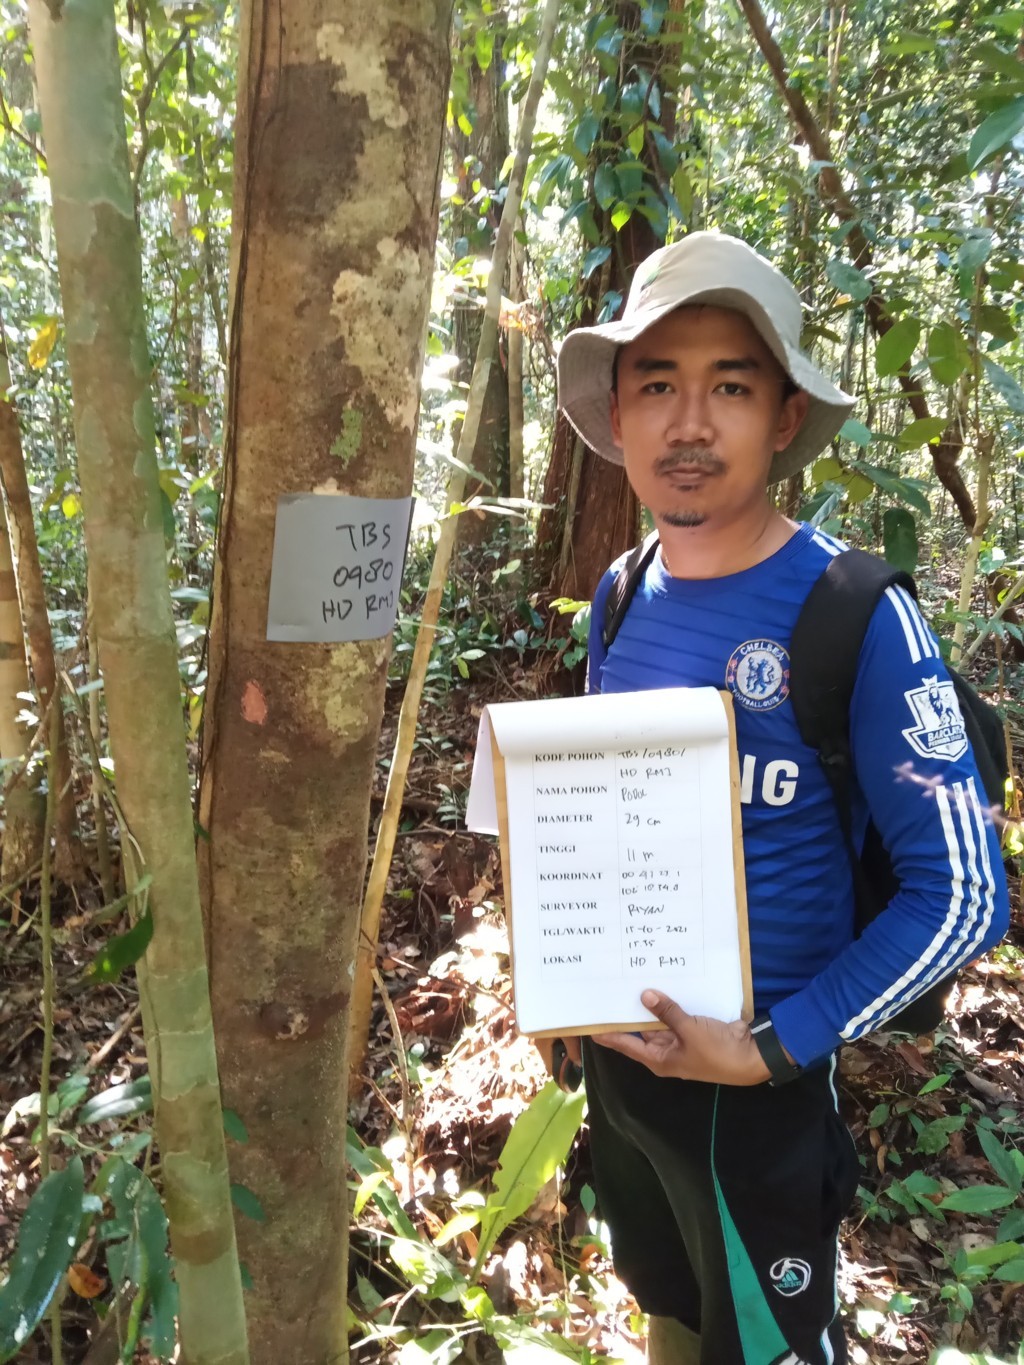 TBS
0980
HD RMJ
CHELSEA
FOOTBALL CLUB
BARCLAYS
NG
KODE POHON TBS/0980/
HD RMJ
NAMA POHON
DIAMETER 29 cm
TINGGI 11 m
KOORDINAT
SURVEYOR RIYAN
TGL/WAKTU 15-10-2021
15.35
LOKASI HD RMJ
adidas